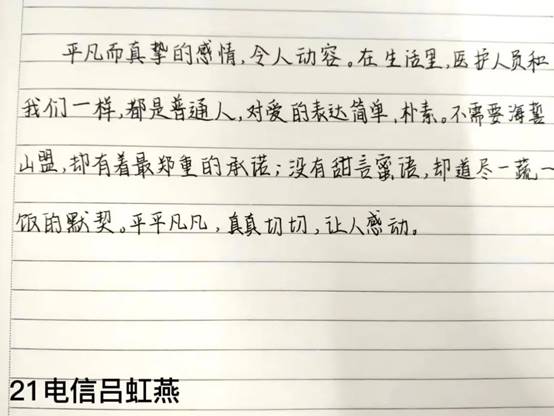 平凡而真挚的感情,令人动容。在生活里,医护人员和
我们一样,都是普通人,对爱的表达简单,朴素。不需要海誓
山盟,却有着最郑重的承诺;没有甜言蜜语,却道尽一蔬一
饭的默契。平平凡凡,真真切切,让人感动。
21电信吕虹燕